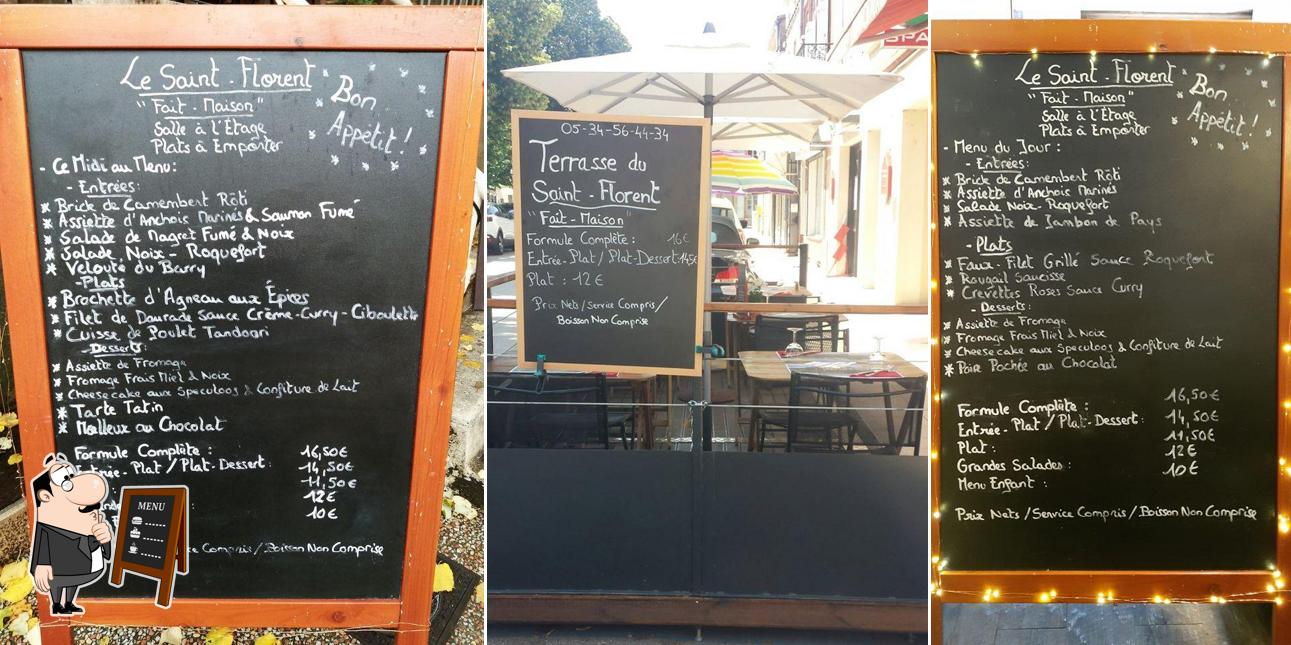 Le Saint - Florent
"Fait - Maison"
Salle à l'Étage
Plats à Emporter
Bon
Appétit !
- Ce Midi au Menu :
- Entrées :
* Brick de Camembert Rôti
* Assiette d'Anchois Marinés & Saumon Fumé
* Salade de Magret Fumé & Noix
* Salade Noix - Roquefort
* Velouté du Barry
- Plats
* Brochette d'Agneau aux Épices
* Filet de Daurade Sauce Crème - Curry - Ciboulette
* Cuisse de Poulet Tandoori
- Desserts :
* Assiette de Fromage
* Fromage Frais Miel & Noix
* Cheesecake aux Speculoos & Confiture de Lait
* Tarte Tatin
* Moelleux au Chocolat
Formule Complète : 16,50€
Entrée - Plat / Plat - Dessert : 14,50€
11,50€
12€
10€
Compris / Boisson Non Comprise
MENU
05-34-56-44-34
Terrasse du
Saint - Florent
"Fait - Maison"
Formule Complète : 16€
Entrée - Plat / Plat - Dessert : 14,5€
Plat : 12€
Prix Nets / Service Compris /
Boisson Non Comprise
SPA
Le Saint - Florent
"Fait - Maison"
Salle à l'Étage
Plats à Emporter
Bon
Appétit !
- Menu du Jour :
- Entrées :
* Brick de Camembert Rôti
* Assiette d'Anchois Marinés
* Salade Noix - Roquefort
* Assiette de Jambon de Pays
- Plats
* Faux - Filet Grillé Sauce Roquefort
* Rougail Saucisse
* Crevettes Roses Sauce Curry
- Desserts :
* Assiette de Fromage
* Fromage Frais Miel & Noix
* Cheesecake aux Speculoos & Confiture de Lait
* Poire Pochée au Chocolat
Formule Complète : 16,50€
Entrée - Plat / Plat - Dessert : 14,50€
Plat : 11,50€
Grandes Salades : 12€
Menu Enfant : 10€
Prix Nets / Service Compris / Boisson Non Comprise